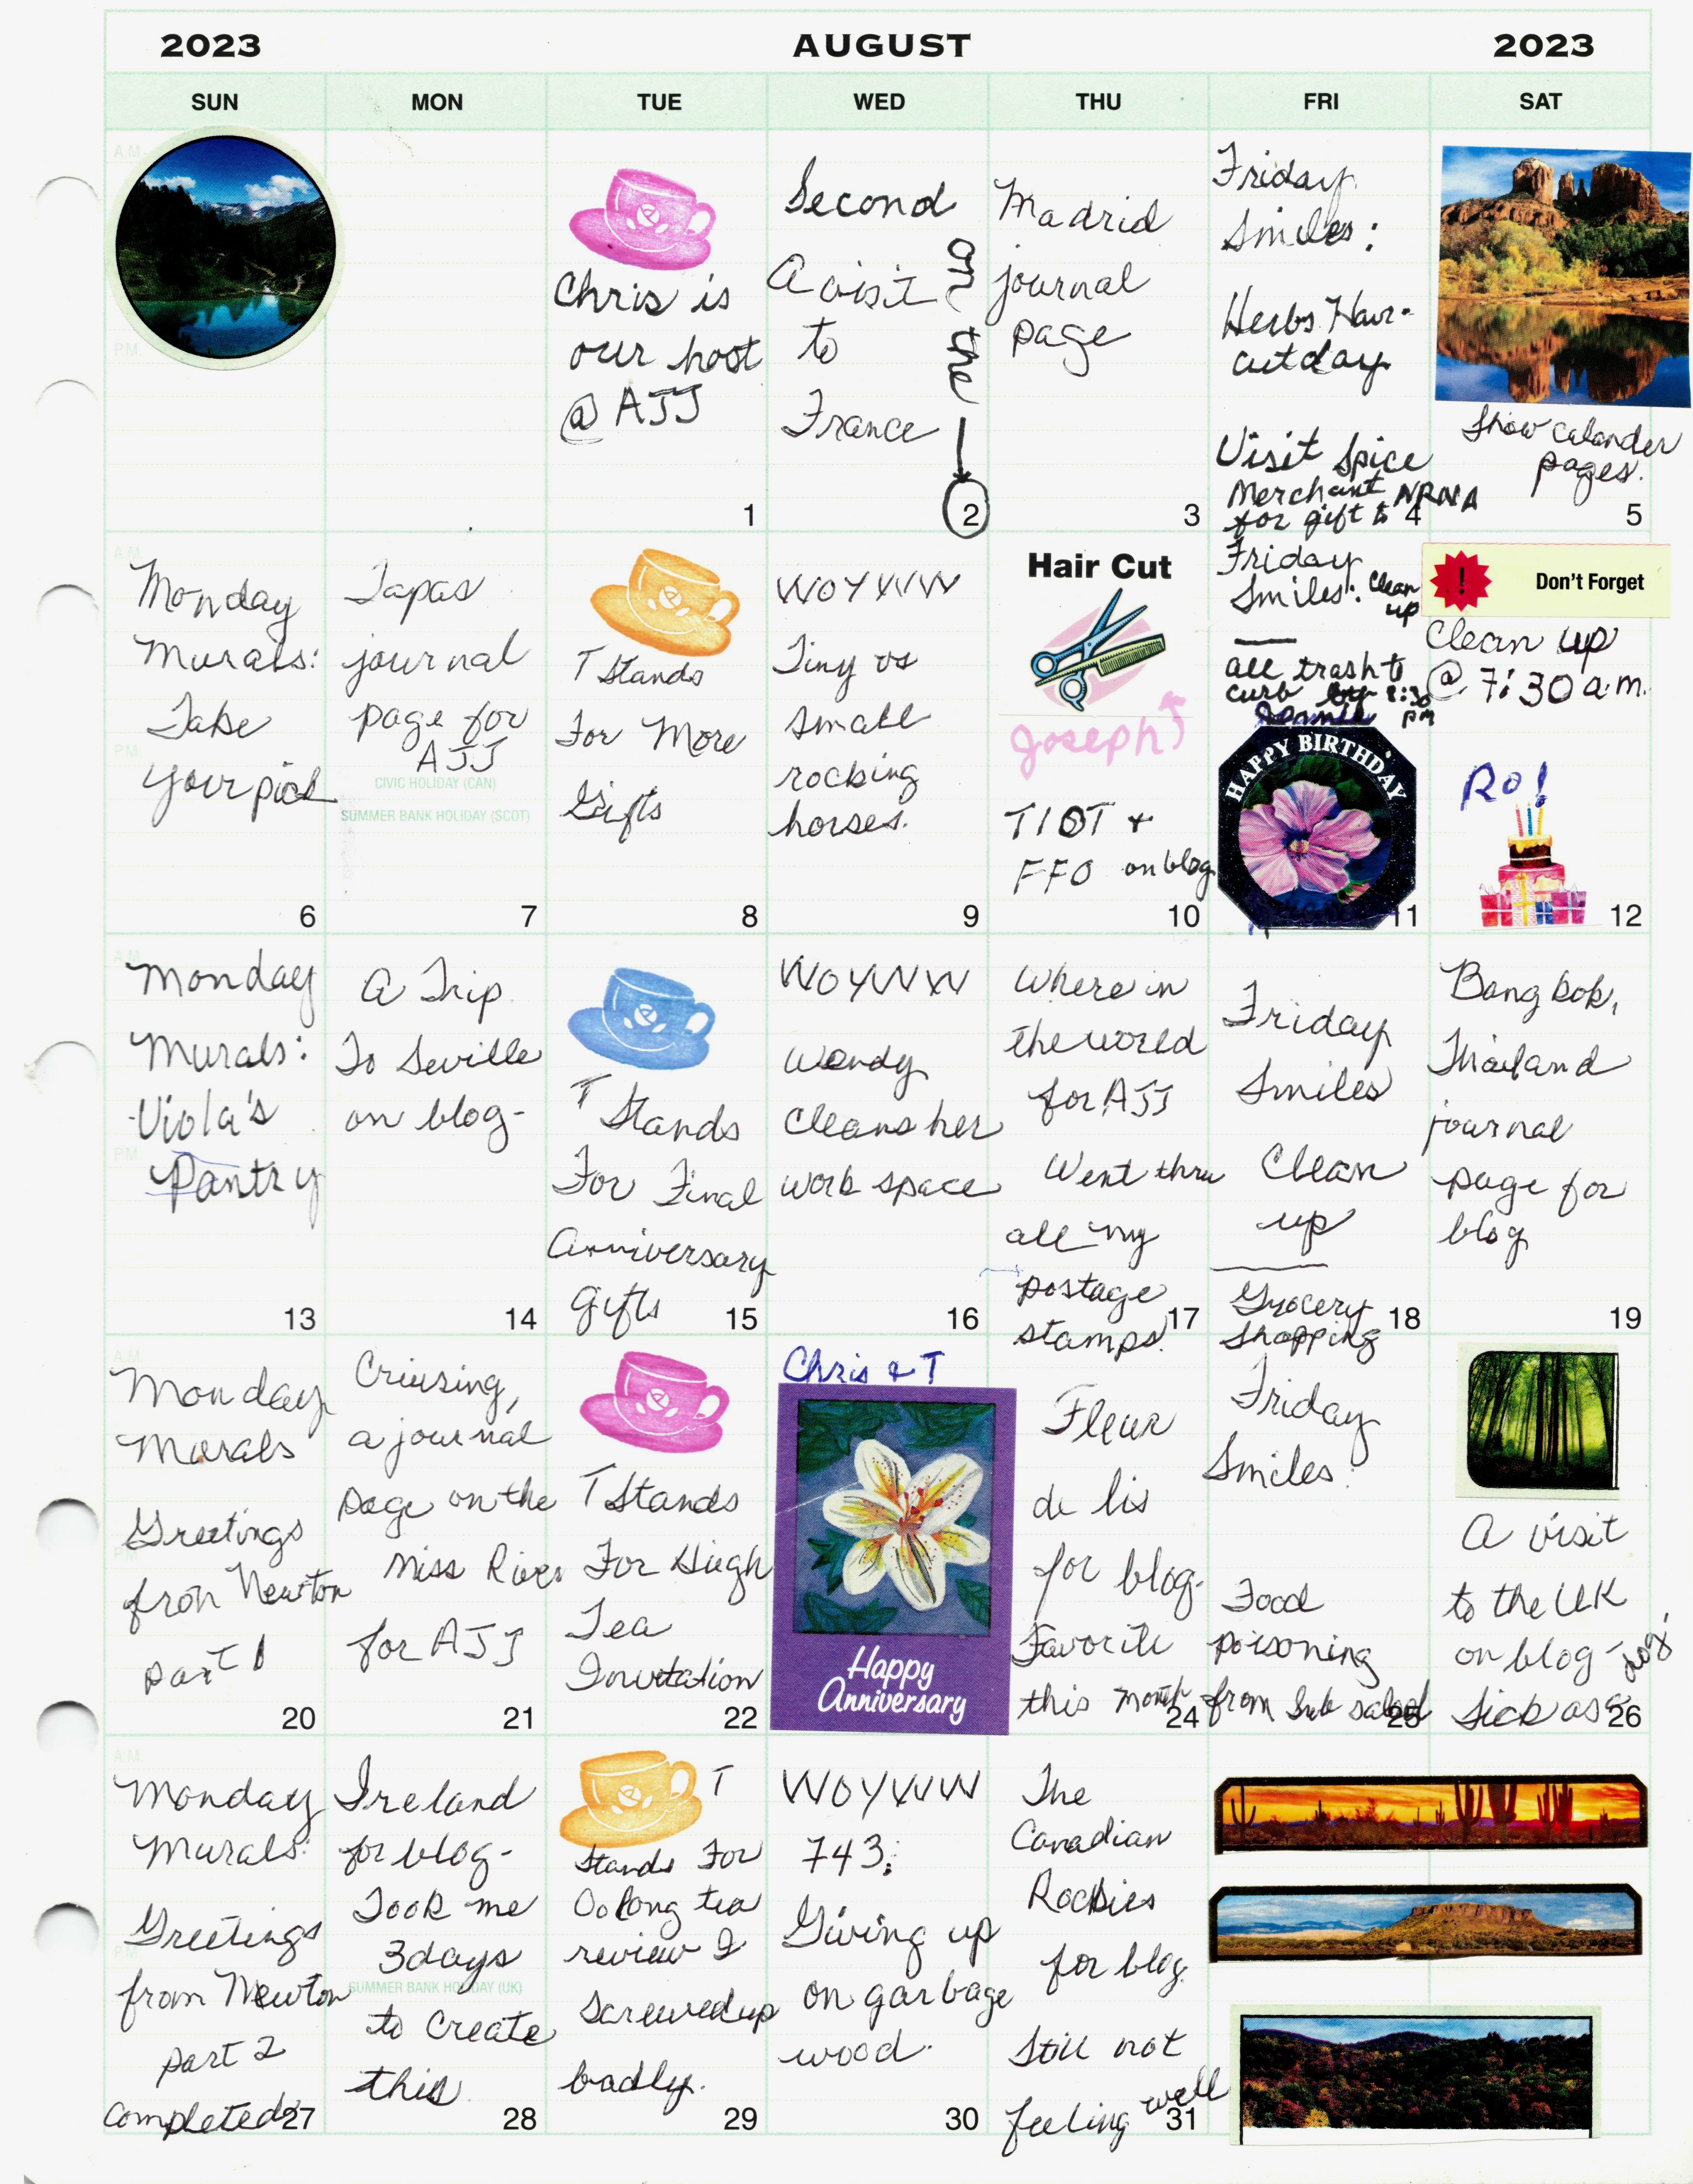 2023 AUGUST 2023
SUN MON TUE WED THU FRI SAT
Chris is
our host
@ AJJ
1
Second
A visit
to
France
on the
2
Madrid
journal
page
3
Friday
Smiles:
Herbs Hair-
cut day
Visit Spice
Merchant
for gift to
NRNA
4
Show calander
pages.
5
Monday
Murals:
Take
your pick
6
Tapas
journal
page for
AJJ
CIVIC HOLIDAY (CAN)
SUMMER BANK HOLIDAY (SCOT)
7
T Stands
For More
Gifts
8
WOYWW
Tiny vs
small
rocking
horses.
9
Hair Cut
Joseph
TIOT +
FFO on blog
10
Friday
Smiles: Clean
up
all trash to
curb by 8:30
pm
HAPPY BIRTHDAY
11
! Don't Forget
Clean up
@ 7:30 a.m.
Ro!
12
Monday
Murals:
Viola's
Pantry
13
A Trip
To Seville
on blog-
14
T Stands
For Final
Anniversary
gifts
15
WOYWW
Wendy
cleans her
work space
16
Where in
the world
for AJJ
Went thru
all my
postage
stamps.
17
Friday
Smiles
Clean
up
Grocery
shopping
18
Bangkok,
Thailand
journal
page for
blog
19
Monday
Murals
Greetings
from Newton
part 1
20
Criusing,
a journal
page on the
Miss River
for AJJ
21
T Stands
For High
Tea
Invitation
22
Chris & T
Happy
Anniversary
Fleur
de lis
for blog.
Favorite
this month
24
Friday
Smiles:
Food
poisoning
from Sub salad
25
A visit
to the UK
on blog-
Sick as a
dog.
26
Monday
Murals:
Greetings
from Newton
part 2
completed
27
Ireland
for blog-
Took me
3 days
SUMMER BANK HOLIDAY (UK)
to create
this
28
T
Stands For
Oolong tea
review I
screwed up
badly.
29
WOYWW
743:
Giving up
on garbage
wood.
30
The
Canadian
Rockies
for blog.
Still not
feeling well
31